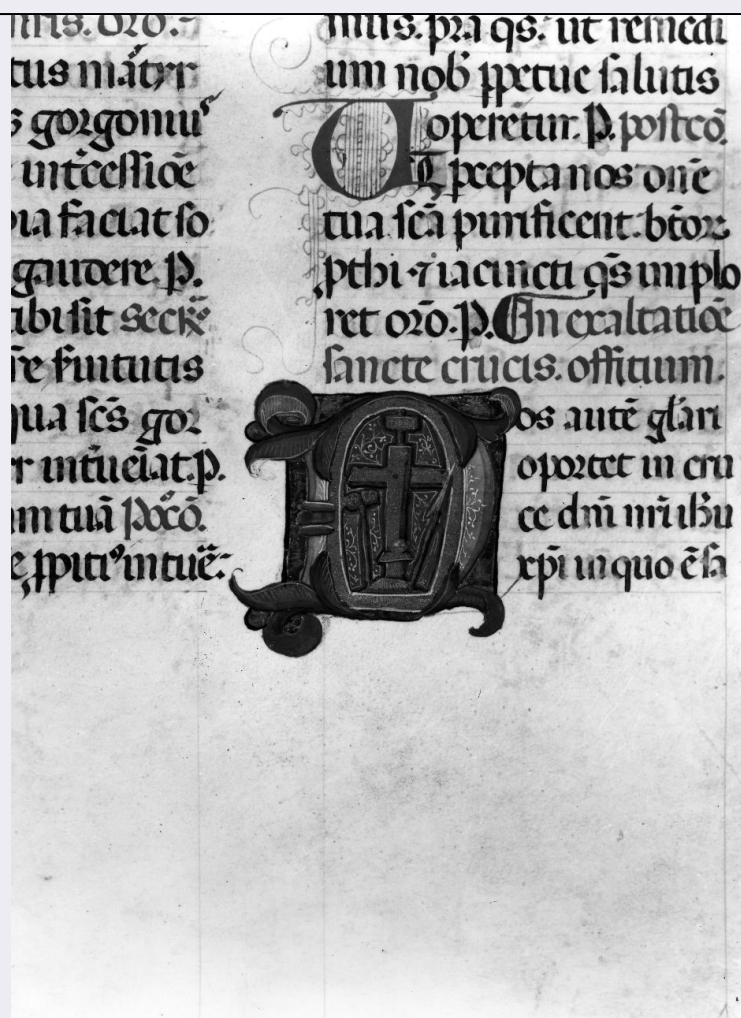 oro.
tus mr̃tyr
s gorgoniuˢ
int̃cessiõe
faciat so
gaudere. P.
tibi sit secr̃
tua sc̃s gor
r intũeiat. P.
am tuã Poc̃o.
mus. pra qs̃. ut remedi
um nob̃ ppetue salutis
operẽtur. P. postcõ.
pcepta nos dñe
tua sc̃a purificent. bt̃oꝝ
pthi ⁊ iacincti qs̃ implo
ret orõ. P. In exaltatiõe
sancte crucis. offitium.
Nos autẽ gl̃ari
oportet in cru
ce dñi nr̃i ihũ
xp̃i in quo ẽ sa